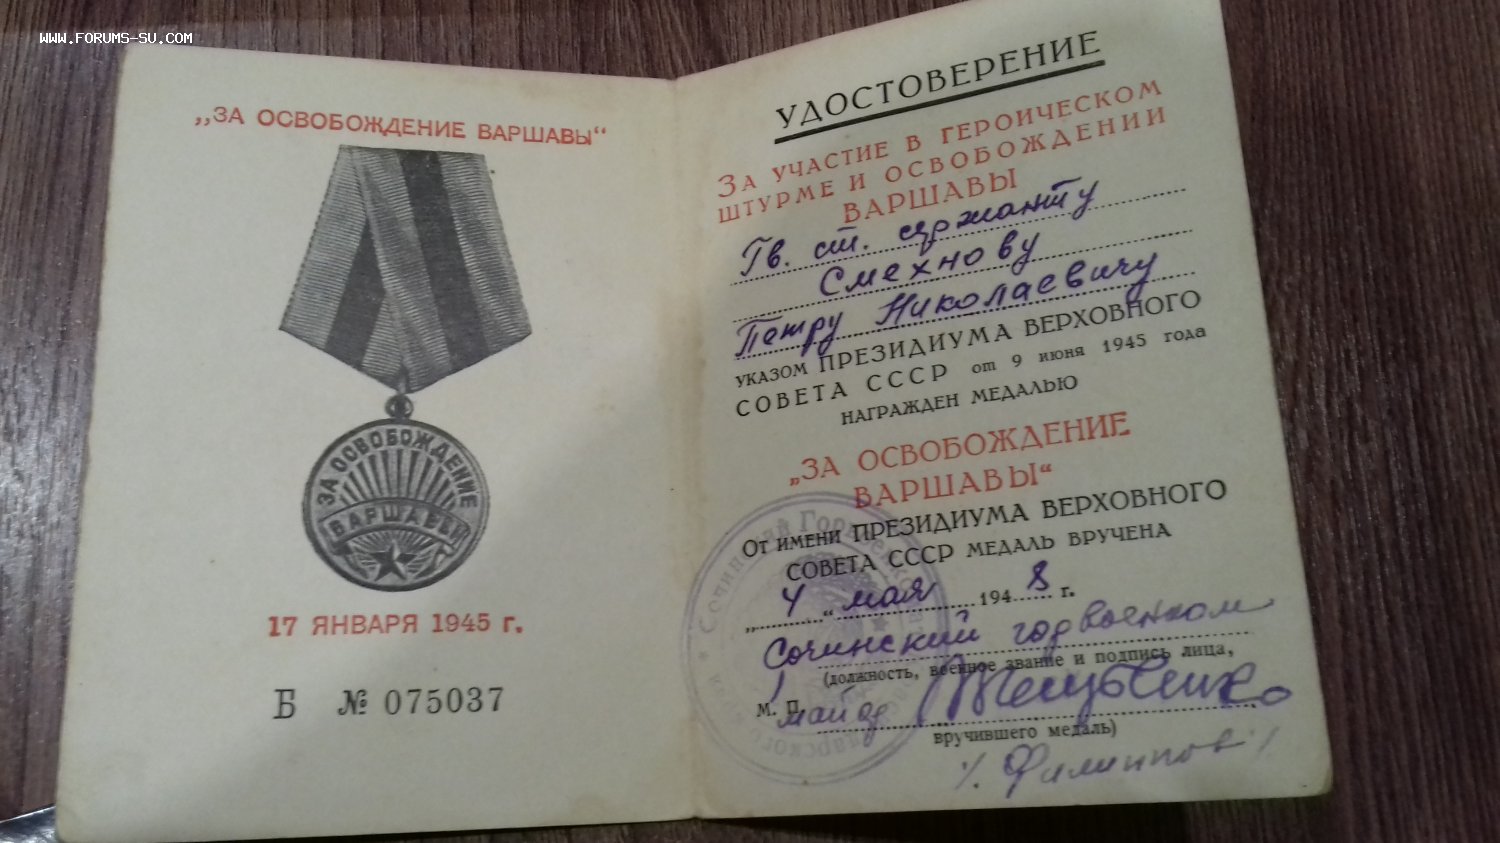 WWW.FORUMS-SU.COM
„ЗА ОСВОБОЖДЕНИЕ ВАРШАВЫ“
ЗА ОСВОБОЖДЕНИЕ
ВАРШАВЫ
17 ЯНВАРЯ 1945 г.
Б № 075037
УДОСТОВЕРЕНИЕ
ЗА УЧАСТИЕ В ГЕРОИЧЕСКОМ
ШТУРМЕ И ОСВОБОЖДЕНИИ
ВАРШАВЫ
Гв. ст. сержанту
Смехнову
Петру Николаевичу
УКАЗОМ ПРЕЗИДИУМА ВЕРХОВНОГО
СОВЕТА СССР от 9 июня 1945 года
НАГРАЖДЕН МЕДАЛЬЮ
„ЗА ОСВОБОЖДЕНИЕ
ВАРШАВЫ“
ОТ ИМЕНИ ПРЕЗИДИУМА ВЕРХОВНОГО
СОВЕТА СССР МЕДАЛЬ ВРУЧЕНА
„4“ мая 1948 г.
Сочинский горвоенком
(должность, военное звание и подпись лица,
М. П. майор
вручившего медаль)
/Филиппов/
Сочинский